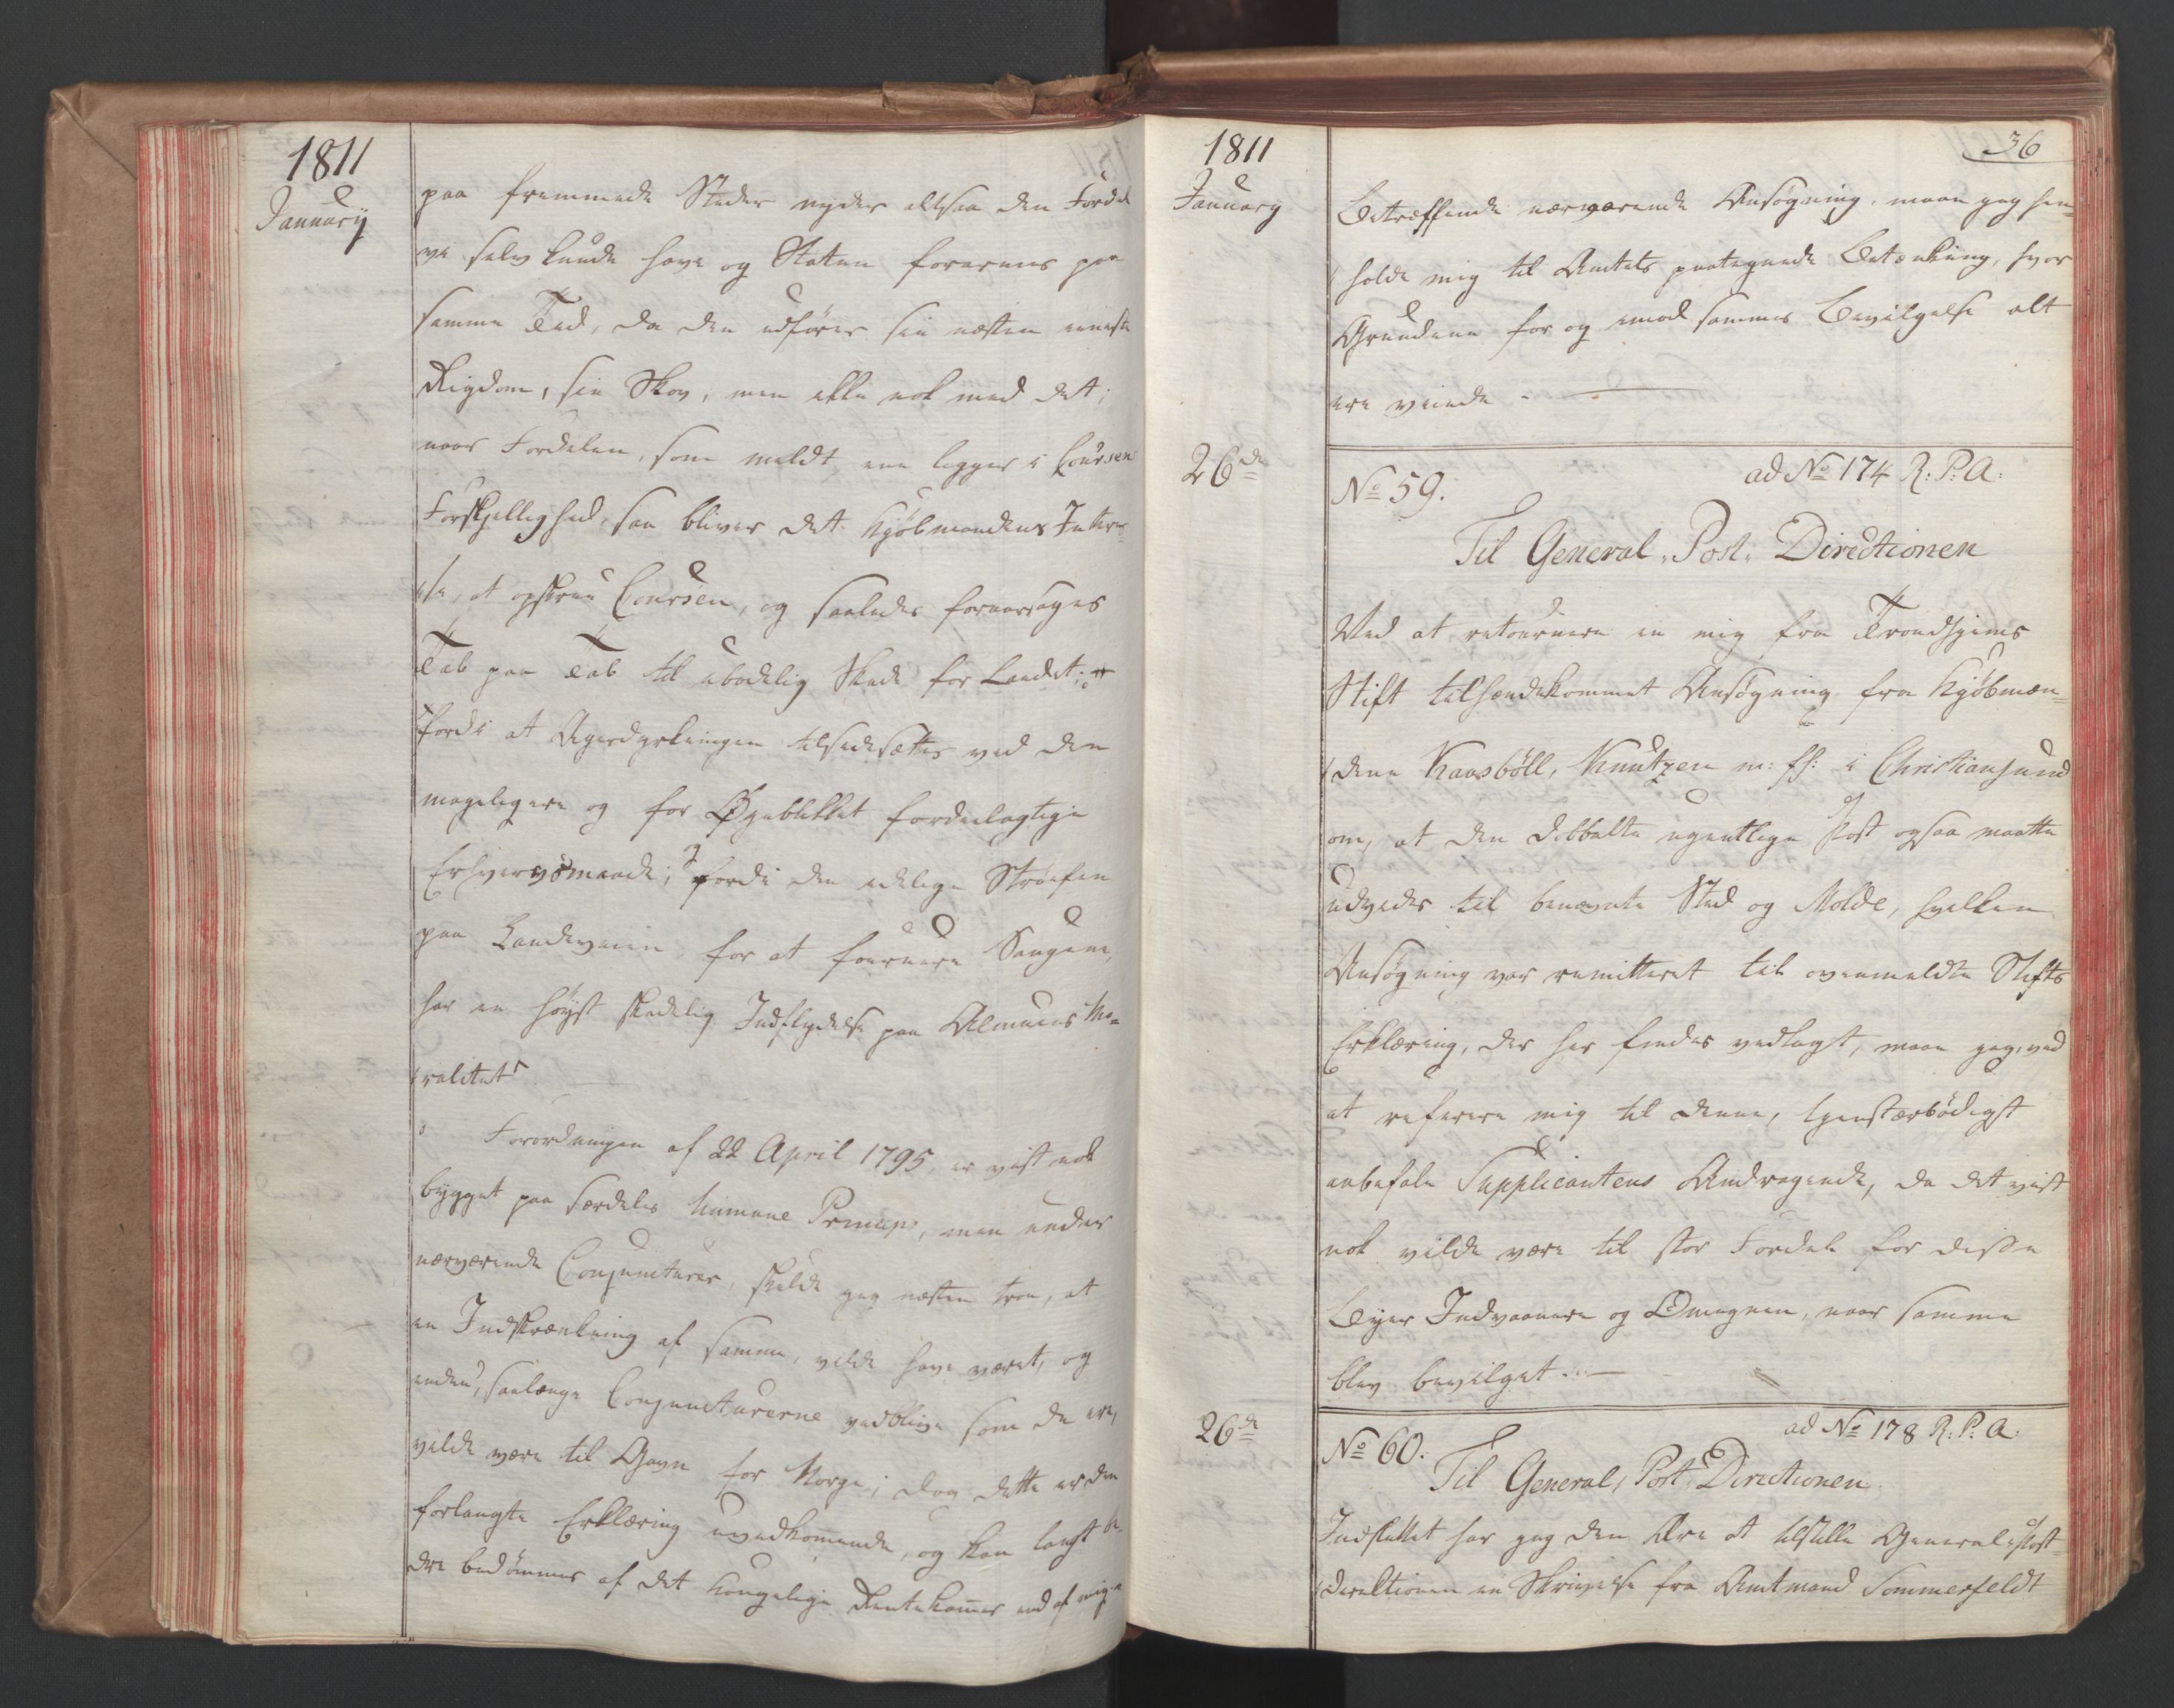 1811
January
paa fremmede Steder nyder altsaa den Fordel
vi selv kunde have og Staten forarmes paa
samme Tid, da den udfører sin næsten eneste
Rigdom, sin Skov, men ikke nok med det;
naar Fordelen, som meldt, ene ligger i Coursens
Forskjellighed, saa bliver det Kjøbmandens Inter¬
esse, at opskrue Coursen, og saaledes foraarsages
Tab paa Tab til ubodelig Skade for Landet;
fordi at Agerdyrkningen tilsidesættes ved den
mageligere og for Øyeblikket fordeelagtige
Erhvervsmaade; fordi den idelige Strøifen
paa Landeveien for at fournere Saugene,
har en høyst skadelig Indflydelse paa Almuens Mo¬
ralitet.
Forordningen af 22 April 1795, er vist nok
bygget paa særdeles humane Princip, men under
nærværende Conjuncturer, skulde jeg næsten troe, at
en Indskrænkning af samme, vilde have været, og
endnu, saalænge Conjuncturerne vedblive som de ere,
vilde være til Gavn for Norge; dog dette er den
forlangte Erklæring uvedkommende, og kan langt be¬
dre bedømmes af det kongelige Rentekammer end af mig.
1811
January
36
Betræffende nærværende Ansøgning, maae jeg hen¬
holde mig til Amtets paategnede Betænkning, hvor
Grundene for og imod sammes Bevilgelse alt
ere veiede.
26de
No 59.
ad No 174 R: P: A:
Til General-Post-Directionen
Ved at retournere en mig fra Trondhjems
Stift tilhændekommet Ansøgning fra Kjøbmæn¬
dene Kaasbøll, Knutzen m: fl: i Christiansund
om, at den dobbelte ugentlige Post ogsaa maatte
udvides til benævnte Sted og Molde, hvilken
Ansøgning var remitteret til ovenmeldte Stifts
Erklæring, der her findes vedlagt, maae jeg, ved
at referere mig til denne, tjenstærbødigst
anbefale Supplicantens Andragende, da det vist
nok vilde være til stor Fordel for disse
Byers Indvaanere og Omegnen, naar samme
blev bevilget.
26de
No 60.
ad No 178 R: P: A:
Til General, Post Directionen
Indsluttet har jeg den Ære at tilstille General-Post¬
directionen en Skrivelse fra Amtmand Sommerfeldt